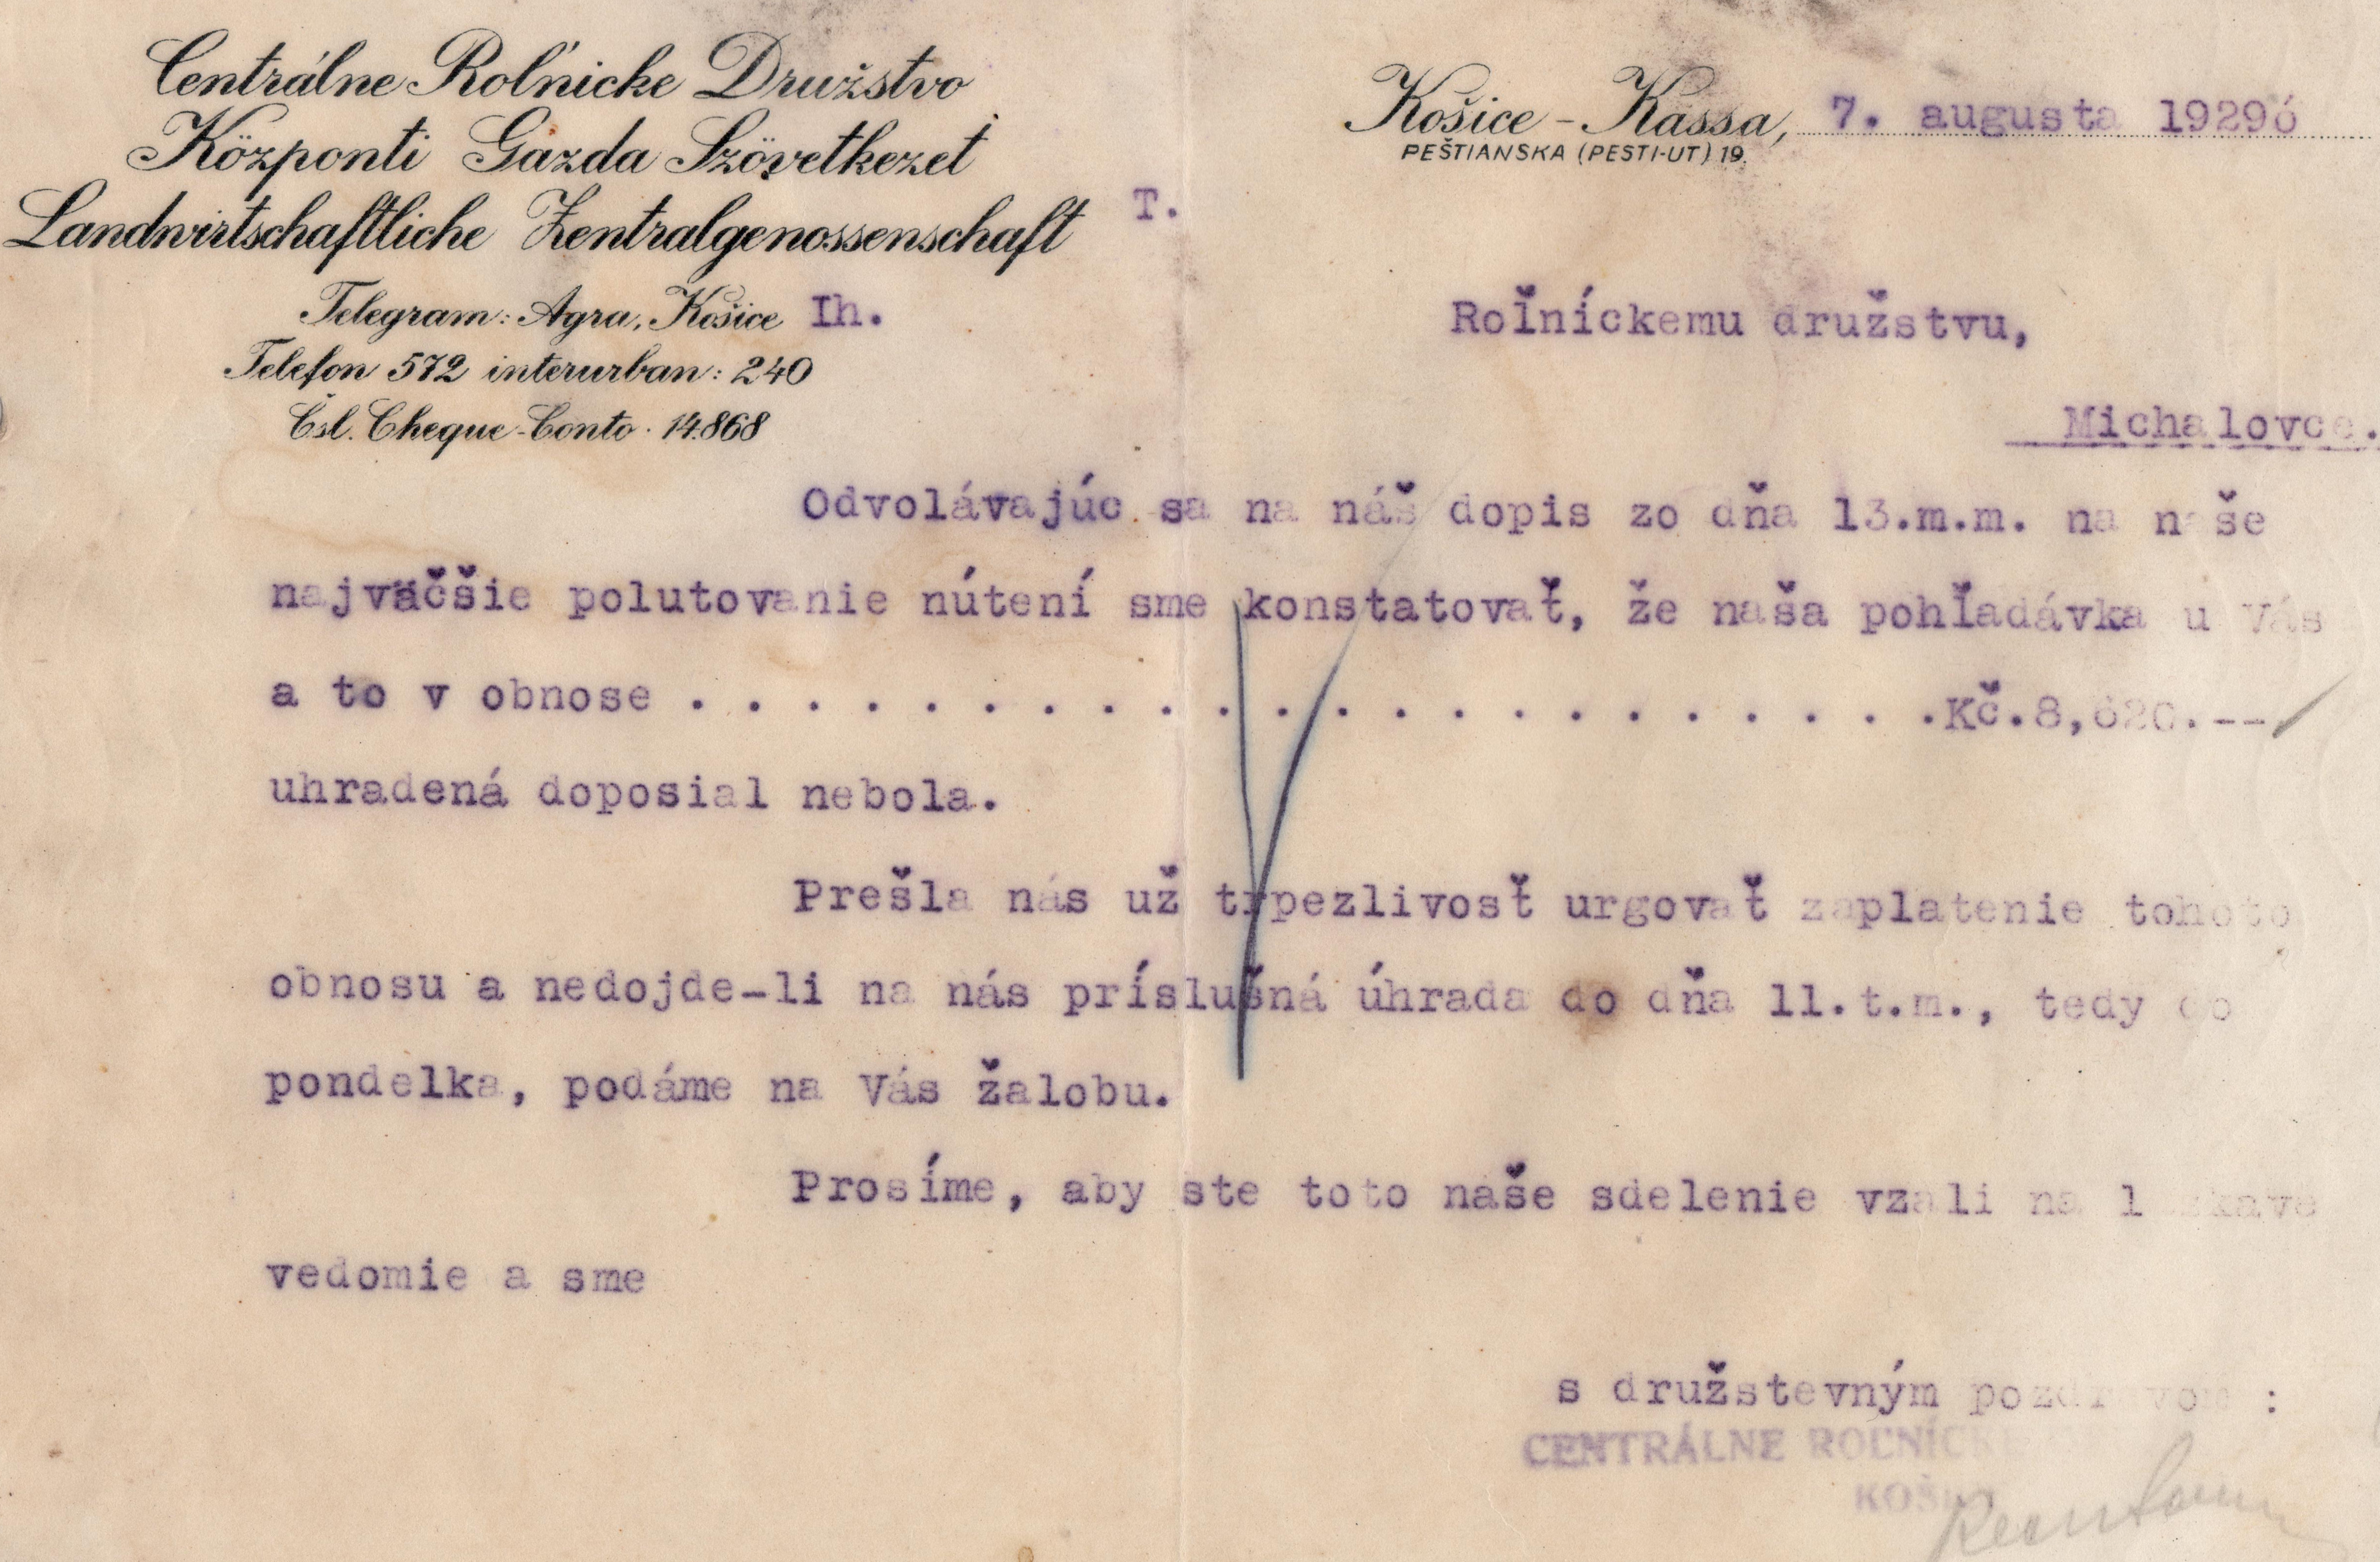 Centrálne Roľnicke Družstvo
Központi Gazda Szövetkezet
Landwirtschaftliche Zentralgenossenschaft
Telegram: Agra, Košice Ih.
Telefon 572 interurban: 240
Čsl. Cheque-Conto · 14.868
Košice - Kassa, 7. augusta 1929
PEŠTIANSKA (PESTI-UT) 19.
T.
Roľníckemu družstvu,
Michalovce.
Odvolávajúc sa na náš dopis zo dňa 13.m.m. na naše
najväčšie polutovanie nútení sme konstatovať, že naša pohľadávka u Vás
a to v obnose . . . . . . . . . . . . . . . . . . . . . . Kč.8,620.--
uhradená doposial nebola.
Prešla nás už trpezlivosť urgovať zaplatenie tohoto
obnosu a nedojde-li na nás príslušná úhrada do dňa 11.t.m., tedy do
pondelka, podáme na Vás žalobu.
Prosíme, aby ste toto naše sdelenie vzali na láskavé
vedomie a sme
s družstevným pozdravom :
CENTRÁLNE ROĽNÍCKE
KOŠICE